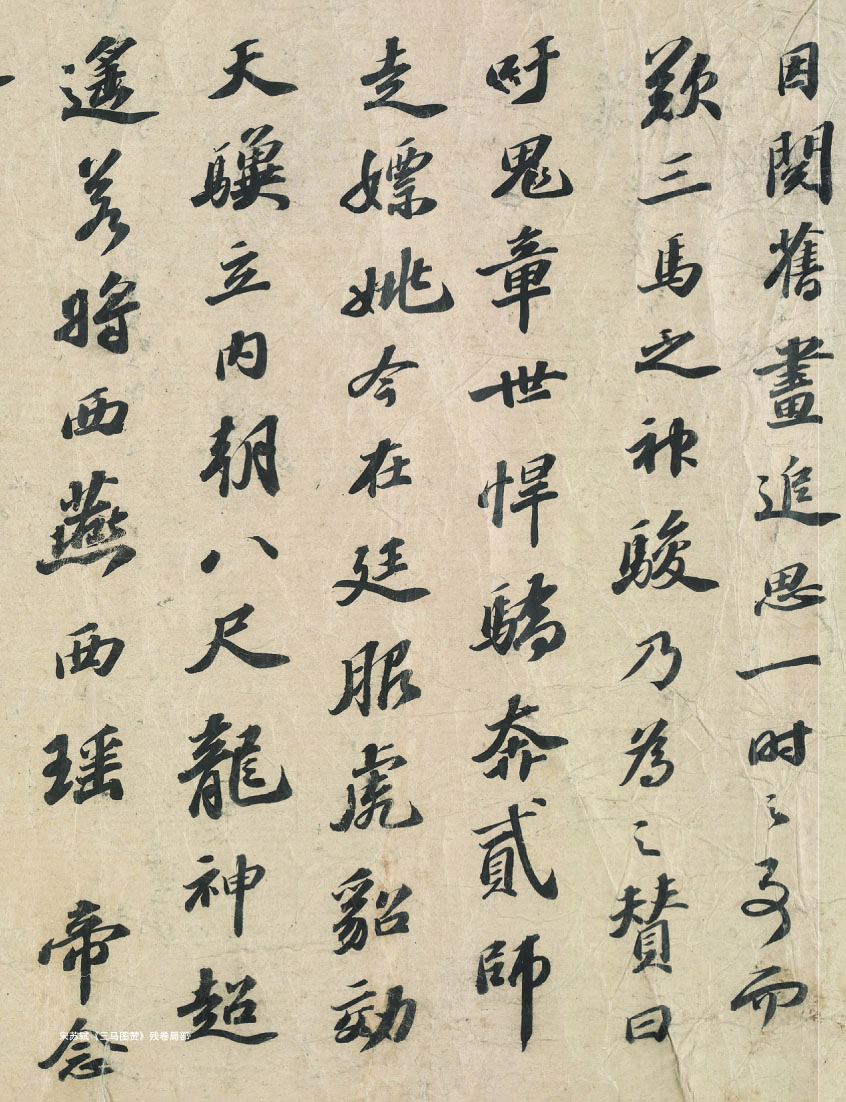 因閱舊畫追思一时之事而
歎三馬之神駿乃為之贊曰
吁鬼章世悍驕奔貳師
走嫖姚今在廷服虎貂効
天驥立内朝八尺龍神超
遙若將西燕西瑶帝念
宋苏轼《三马图赞》残卷局部